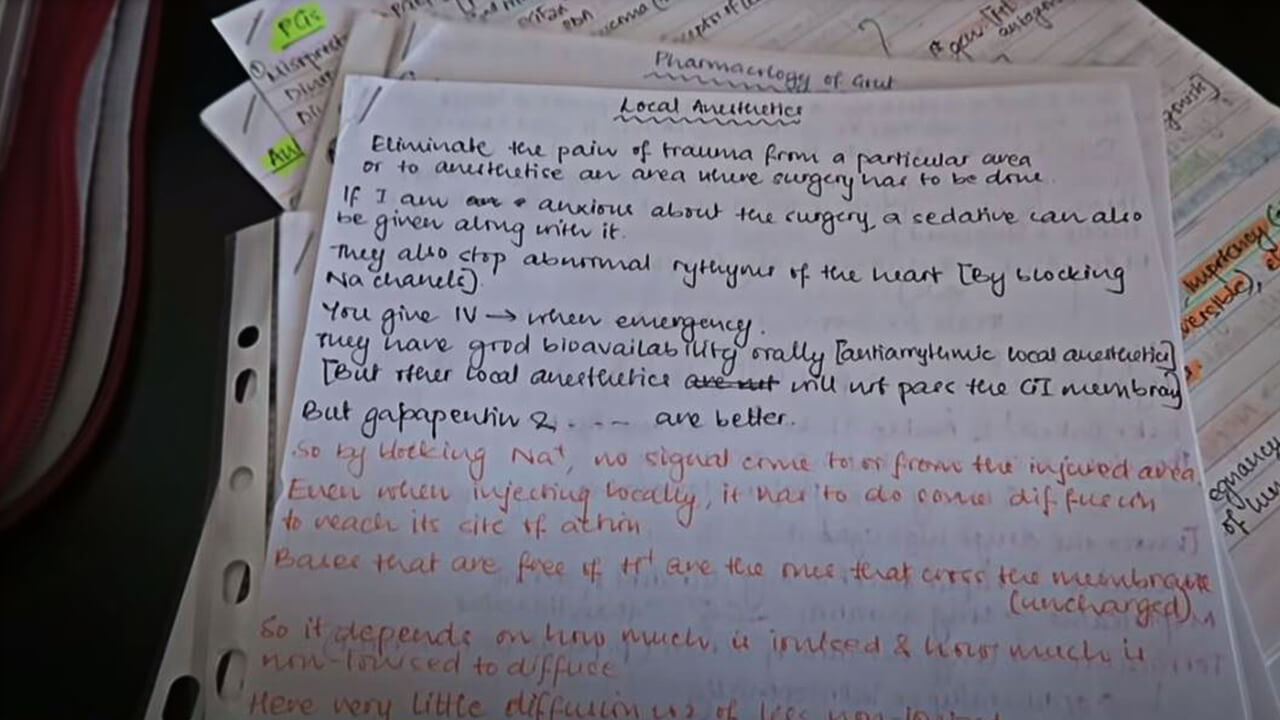 PGs
Misoprost
Pharmacology of Gout
Local Anesthetics
Eliminate the pain of trauma from a particular area
or to anesthetise an area where surgery has to be done.
If I am anxious about the surgery, a sedative can also
be given along with it.
They also stop abnormal rythyms of the heart [By blocking
Na chanels].
You give IV → when emergency.
They have good bioavailability orally [antiarrythmic local anesthetics]
[But other local anesthetics are not will not pass the GI membrane]
But gabapentin & .... are better.
So by blocking Na⁺, no signal come to or from the injured area
Even when injecting locally, it has to do some diffusion
to reach its site of action.
Bases that are free of H⁺ are the ones that cross the membrane
(uncharged).
So it depends on how much is ionised & how much is
non-ionised to diffuse
Here very little diffusion of less
egnancy
of